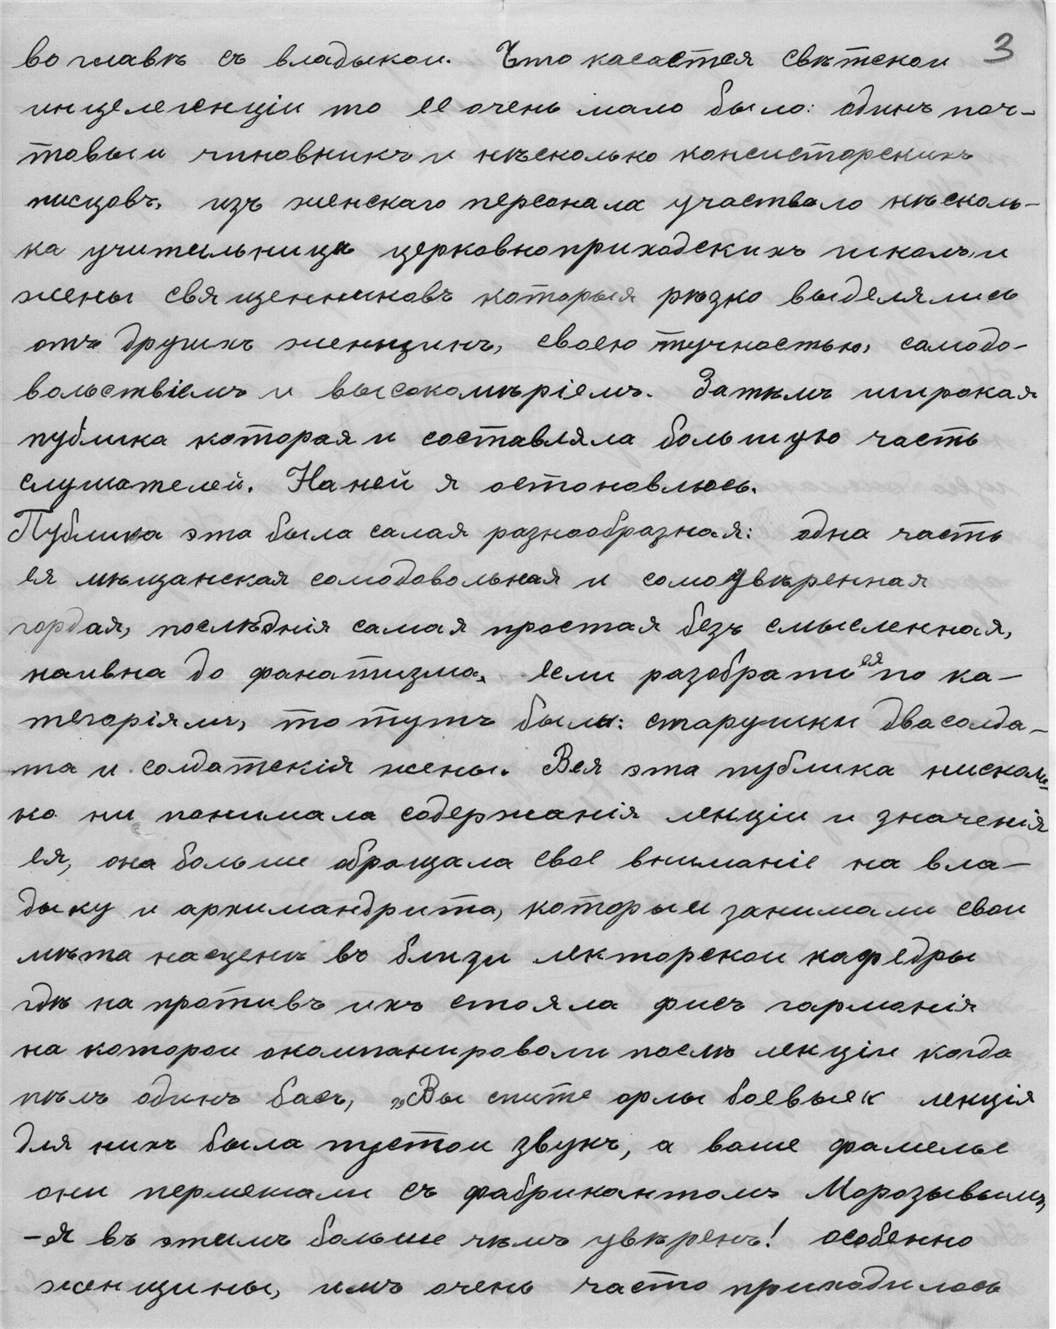 3
во главѣ съ владыкои. Что касается свѣтскои
инцелегенціи то ее очень мало было: одинъ поч-
товыи чиновникъ и нѣсколько консисторскихъ
писцовъ, изъ женскаго персонала участвало нѣсколь-
ка учительницъ церковноприходскихъ школъ и
жены священниковъ которыя рѣзко выделялись
отъ другихъ женщинъ, своею тучностью, самодо-
вольствіемъ и высокомѣріемъ. Затѣмъ широкая
публика которая и составляла большую часть
слушателей. На ней я остоновлюсь.
Публика эта была самая разнообразная: одна часть
ея мѣщанская сомодовольная и сомоувѣренная
гордая, послѣднія самая простая безъ смысленная,
наивна до фонатизма, если разобрать ея по ка-
тегоріямъ, то тутъ были: старушки два солда-
та и солдатскія жены. Вся эта публика нисколь-
ко ни понимала содержанія лекціи и значенія
ея, она больше оброщала свое вниманіе на вла-
дыку и архимандрита, которыи занимали свои
мѣта насценѣ въ близи лекторскои кафедры
гдѣ на противъ ихъ стояла фисъ гармонія
на которои окомпанировали послѣ лекціи когда
пѣлъ одинъ басъ, „Вы спите орлы боевыя" лекція
для нихъ была пустои звукъ, а ваше фамелье
они пермешали съ фабрикантомъ Морозывымъ,
-я въ этимъ больше чѣмъ увѣренъ! особенно
женщины, имъ очень часто приходилось